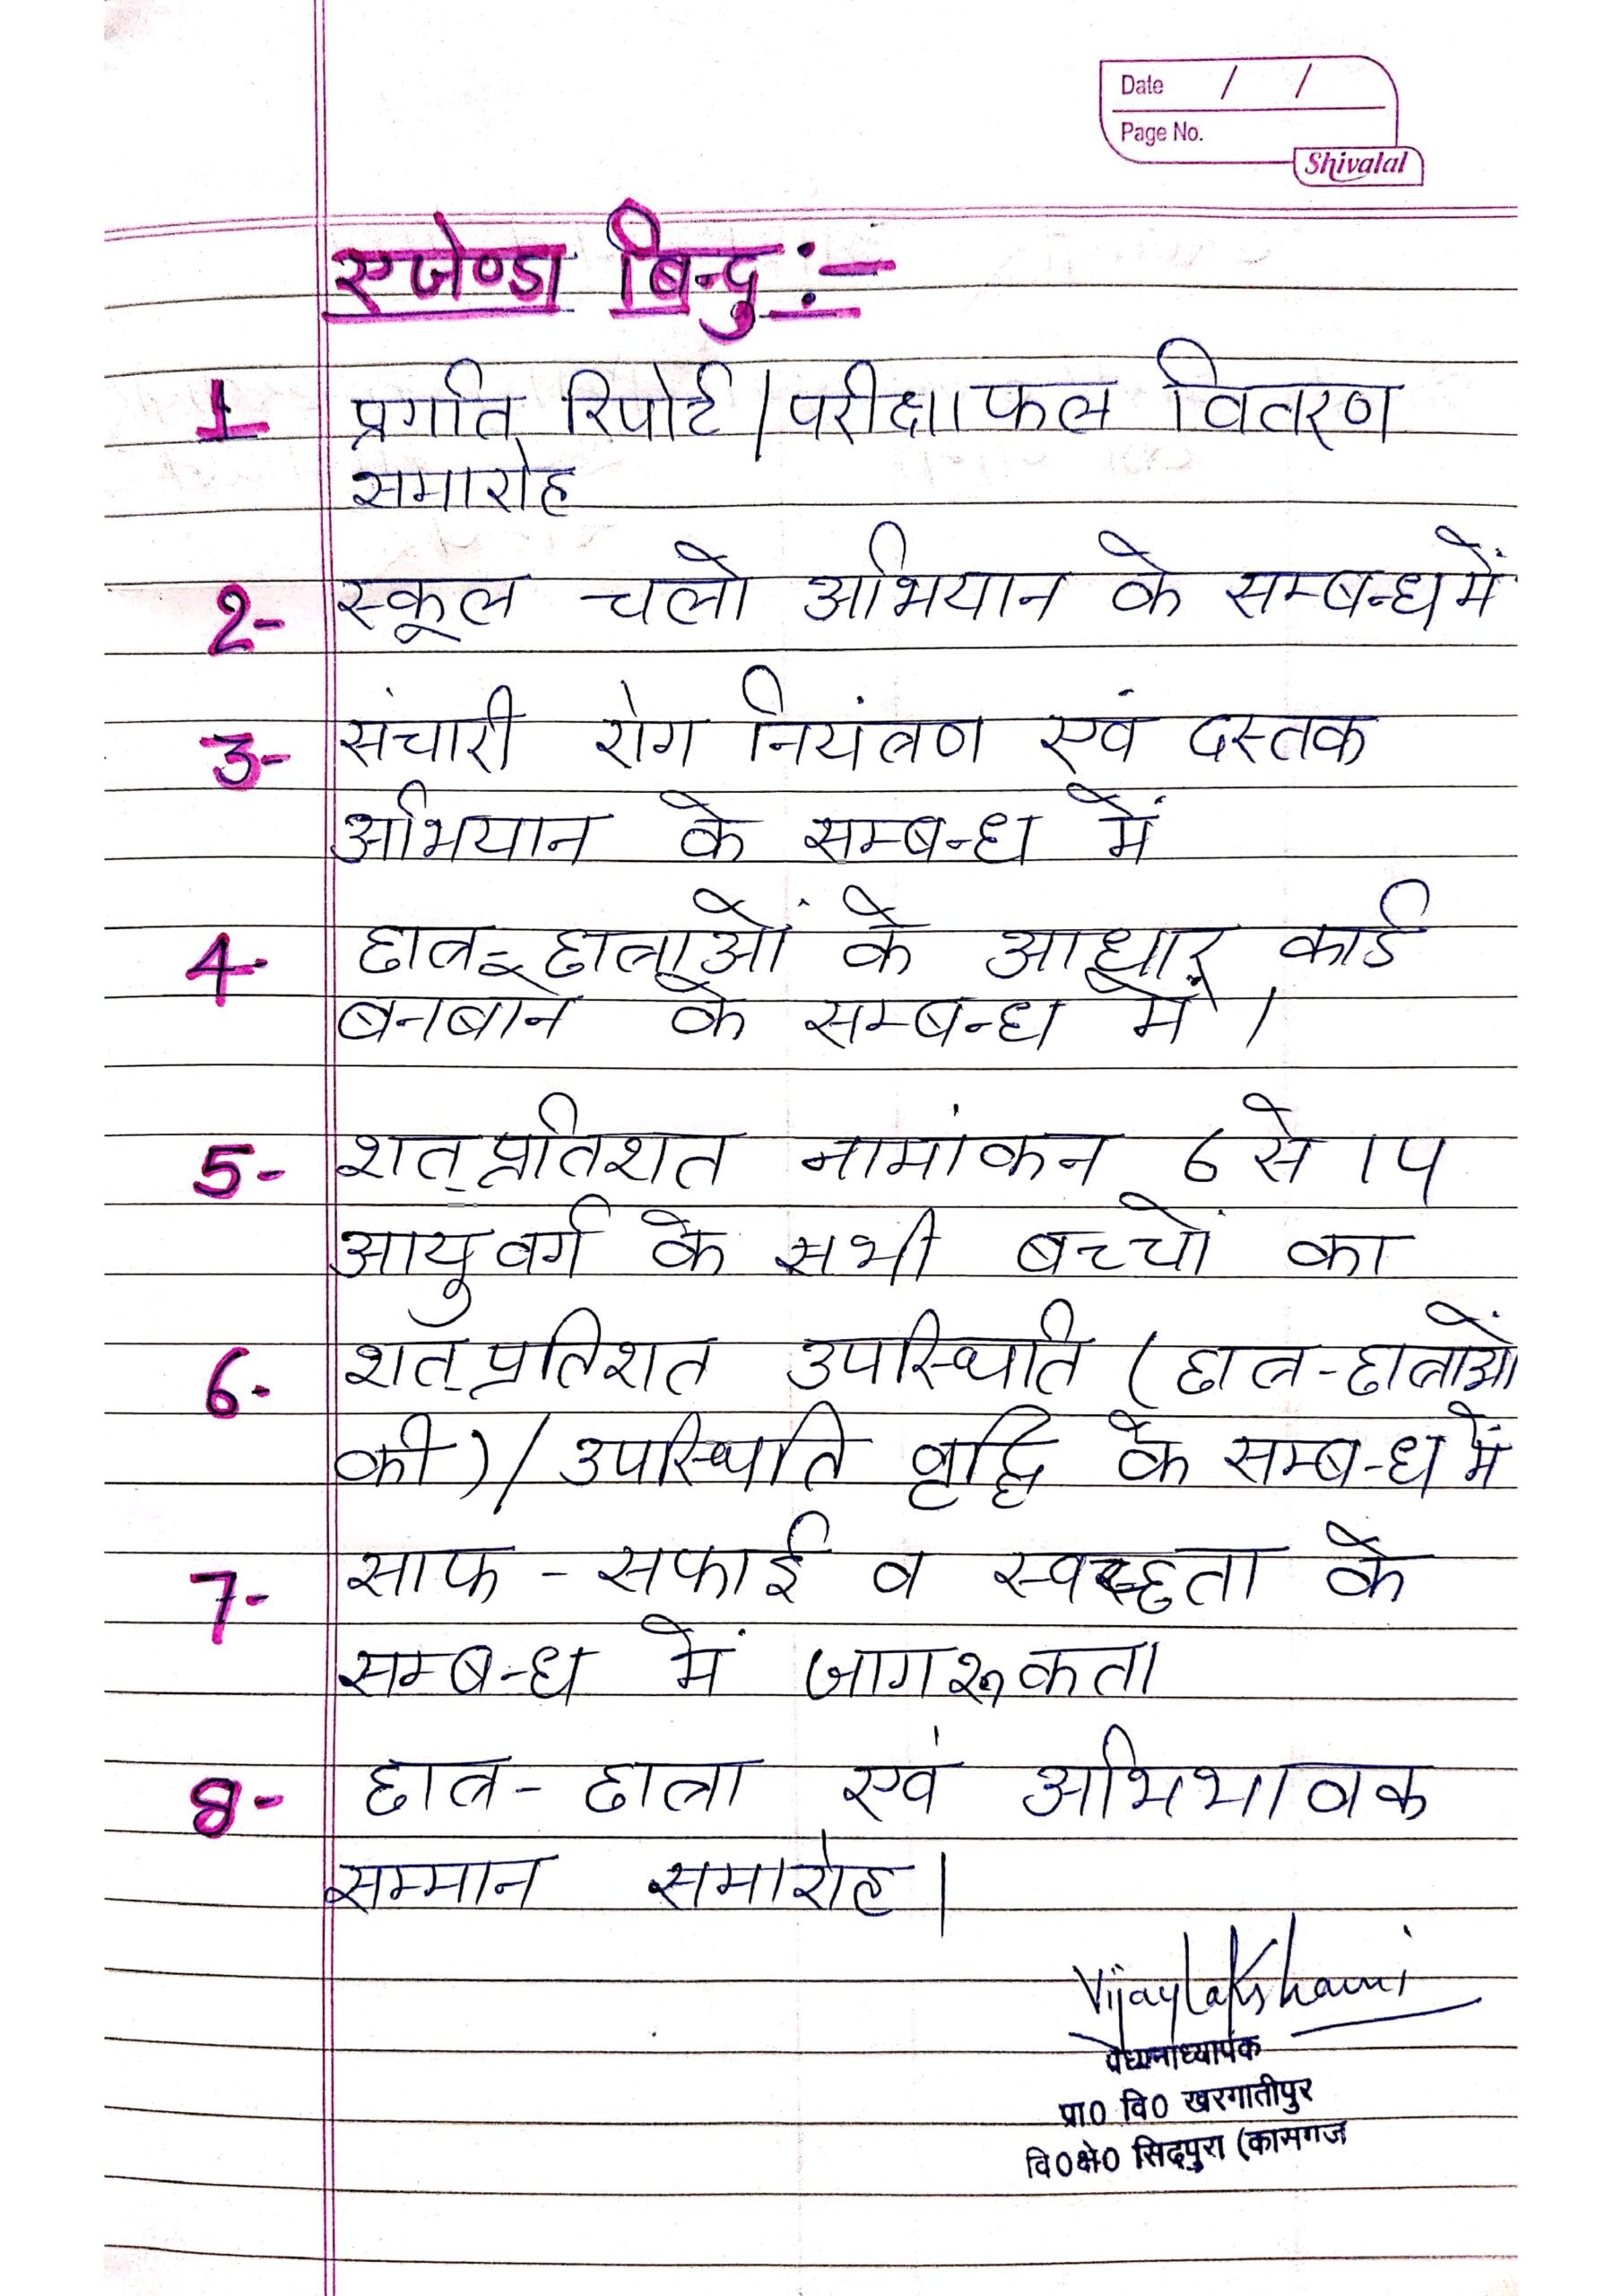 Date / /
Page No.
Shivalal
एजेण्डा बिन्दु :-
1- प्रगति रिपोर्ट / परीक्षाफल वितरण
समारोह
2- स्कूल चलो अभियान के सम्बन्ध में
3- संचारी रोग नियंत्रण एवं दस्तक
अभियान के सम्बन्ध में
4- छात्र-छात्राओं के आधार कार्ड
बनबाने के सम्बन्ध में ।
5- शत्प्रतिशत नामांकन 6 से 14
आयु वर्ग के सभी बच्चों का
6- शत्प्रतिशत उपस्थिति (छात्र-छात्राओं
की) / उपस्थिति वृद्धि के सम्बन्ध में
7- साफ - सफाई व स्वच्छता के
सम्बन्ध में जागरूकता
8- छात्र - छात्रा एवं अभिभावक
सम्मान समारोह ।
Vijaylakshami
प्रा0 वि0 खरगातीपुर
वि0क्षे0 सिढ़पुरा (कासगंज